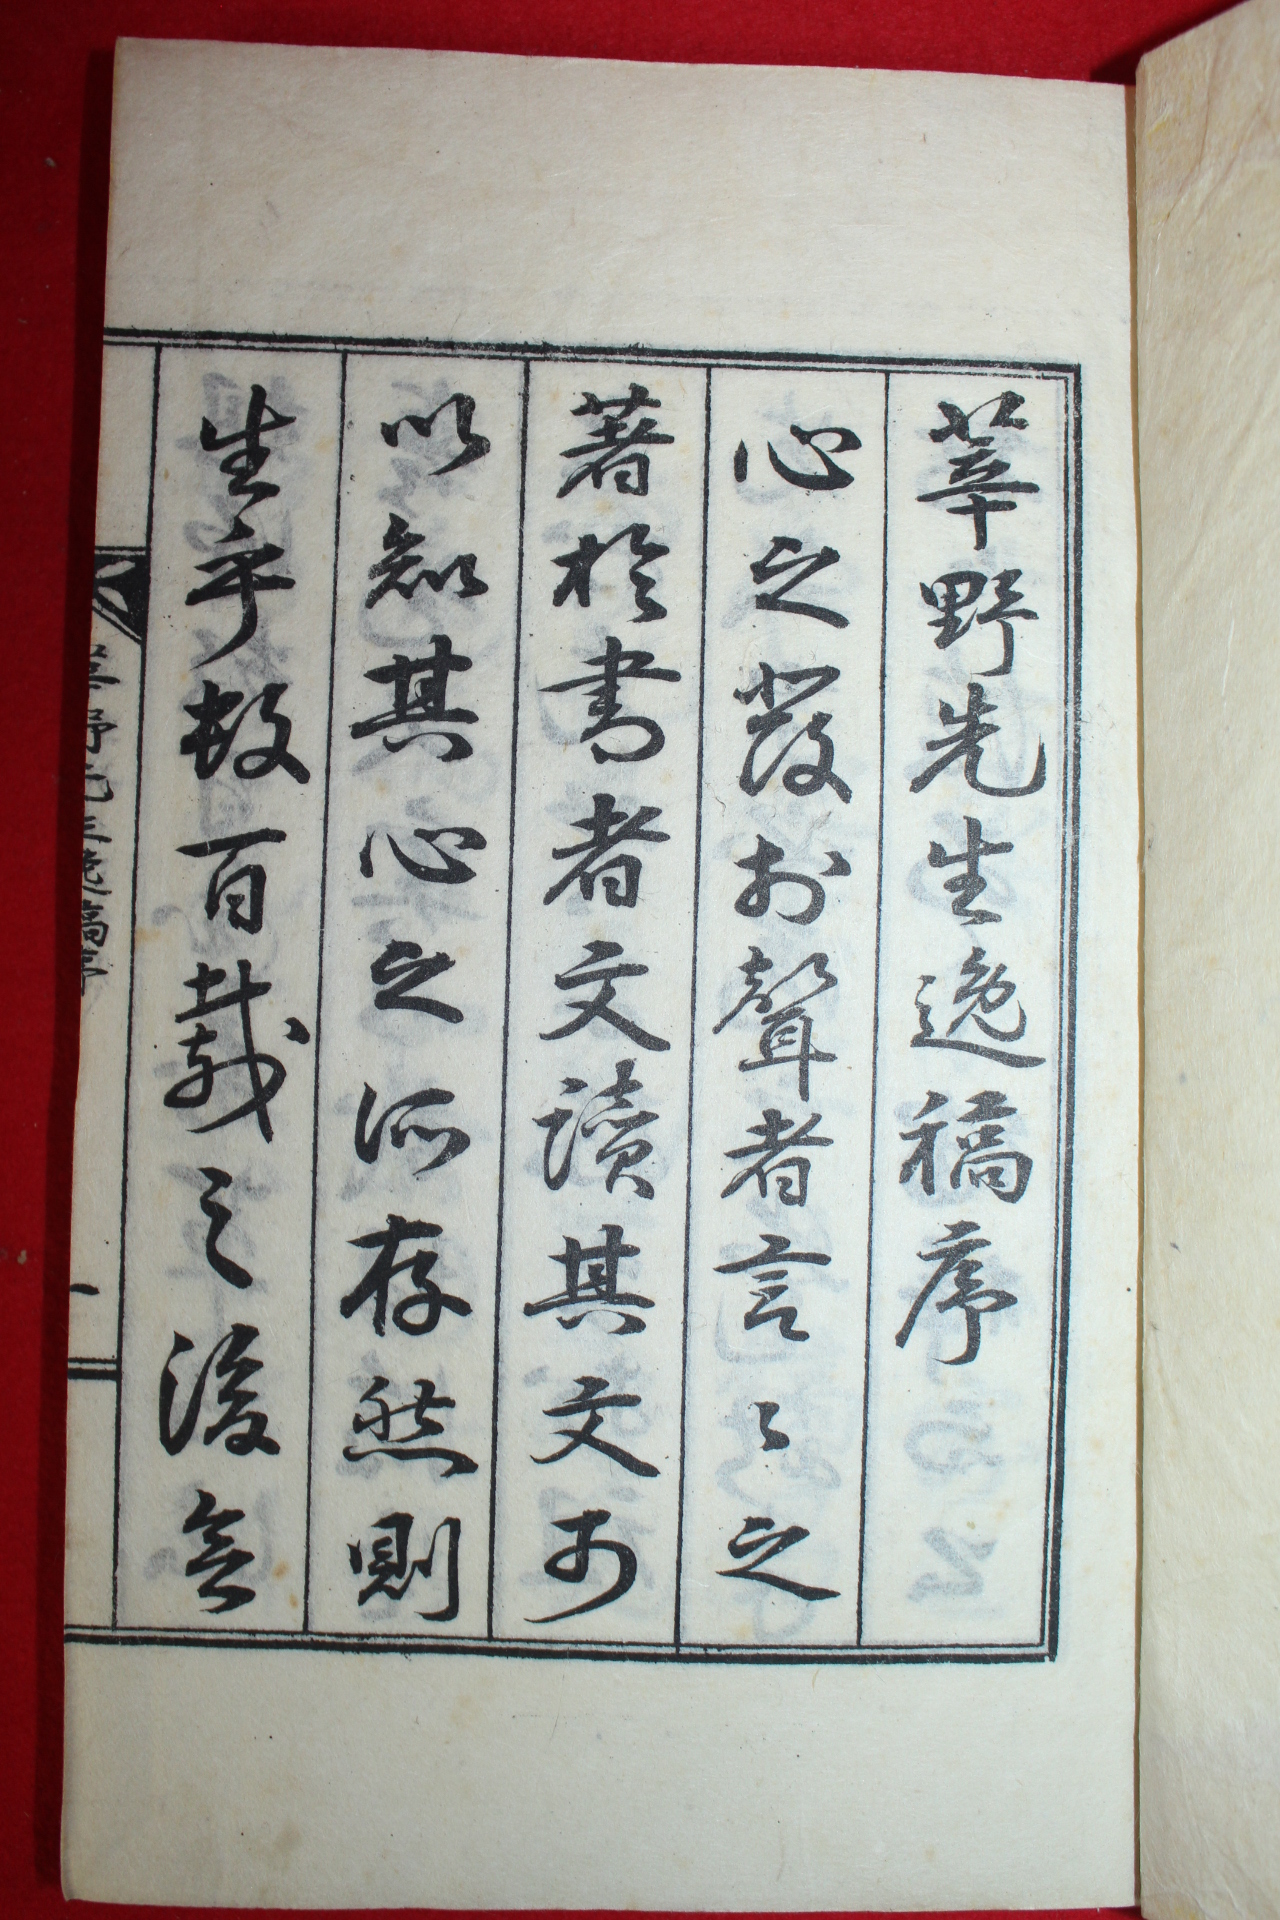 莘野先生逸稿序
心之發於聲者言言之
著於書者文讀其文可
以知其心之所存然則
生乎數百載之後無
莘野先生逸稿序
一